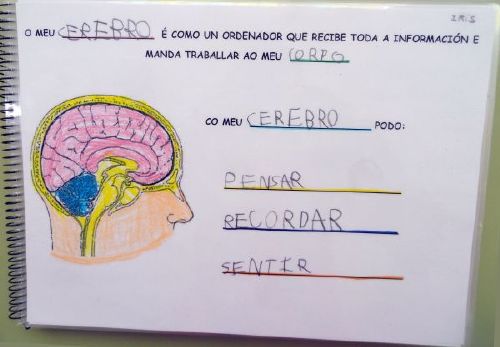 IRIS
O MEU CEREBRO É COMO UN ORDENADOR QUE RECIBE TODA A INFORMACIÓN E
MANDA TRABALLAR AO MEU CORPO
CO MEU CEREBRO PODO:
PENSAR
RECORDAR
SENTIR